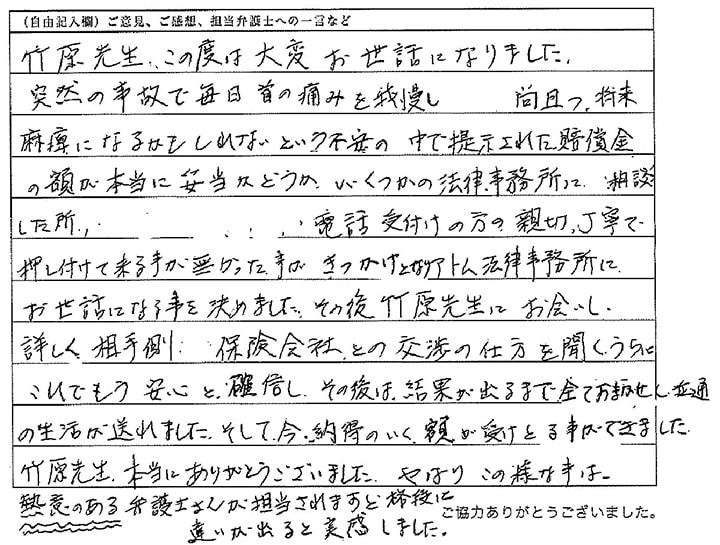 (自由記入欄) ご意見、ご感想、担当弁護士への一言など
竹原先生、この度は大変お世話になりました。
突然の事故で毎日首の痛みを我慢し 尚且つ、将来
麻痺になるかもしれないという不安の中で提示された賠償金
の額が本当に妥当かどうか、いくつかの法律事務所に、相談
した所、 電話受付けの方の親切、丁寧で
押し付けて来る事が無かった事がきっかけとなりアトム法律事務所に
お世話になる事を決めました。その後竹原先生にお会いし、
詳しく相手側 保険会社との交渉の仕方を聞くうちに
これでもう安心と、確信し、その後は、結果が出るまで全ておまかせし普通
の生活が送れました。そして、今、納得のいく額が受けとる事ができました。
竹原先生、本当にありがとうございました。やはりこの様な事は、
熱意のある弁護士さんが担当されますと格段に
違いが出ると実感しました。
ご協力ありがとうございました。